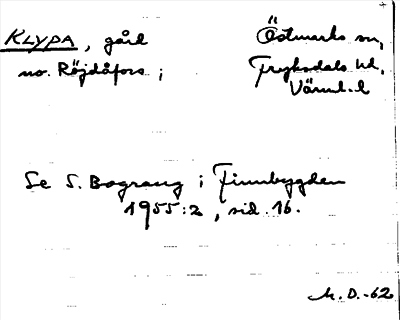 KLYPA, gård
no. Röjdåfors;
Östmarks sn,
Fryksdals hd,
Värml. l
Se S. Bograng i Finnbygden
1955:2, sid. 16.
M. D. -62